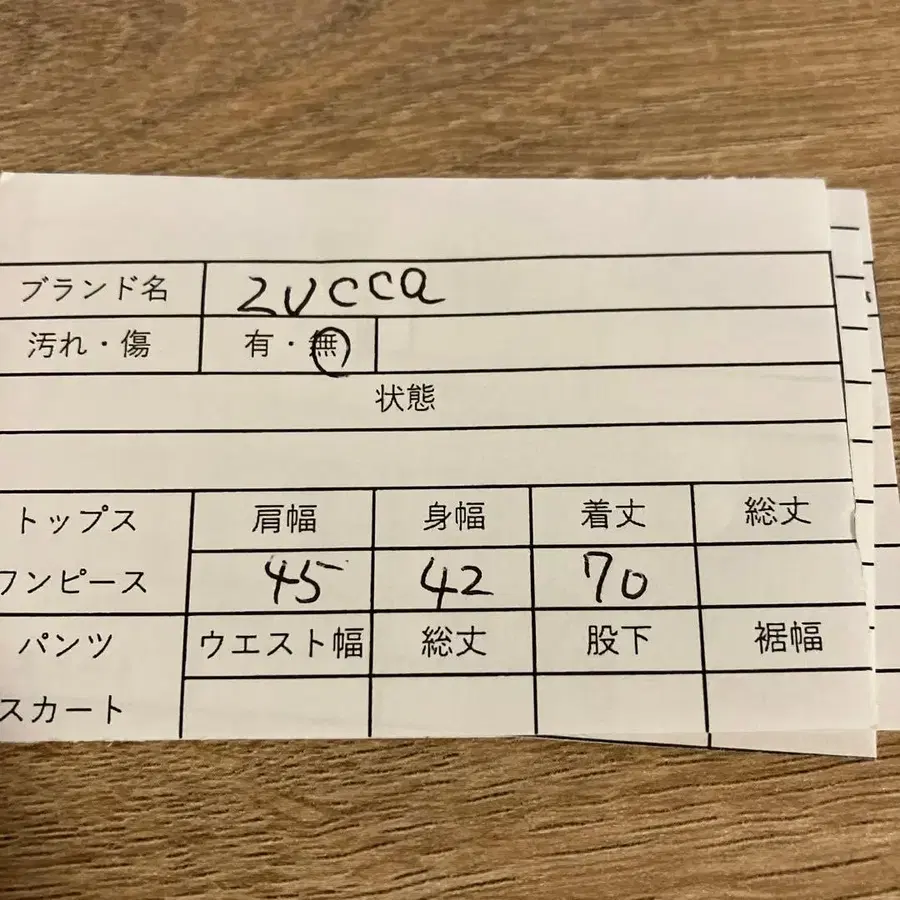 ブランド名 zucca
汚れ・傷 有・無
状態
トップス 肩幅 身幅 着丈 総丈
ワンピース 45 42 70
パンツ ウエスト幅 総丈 股下 裾幅
スカート